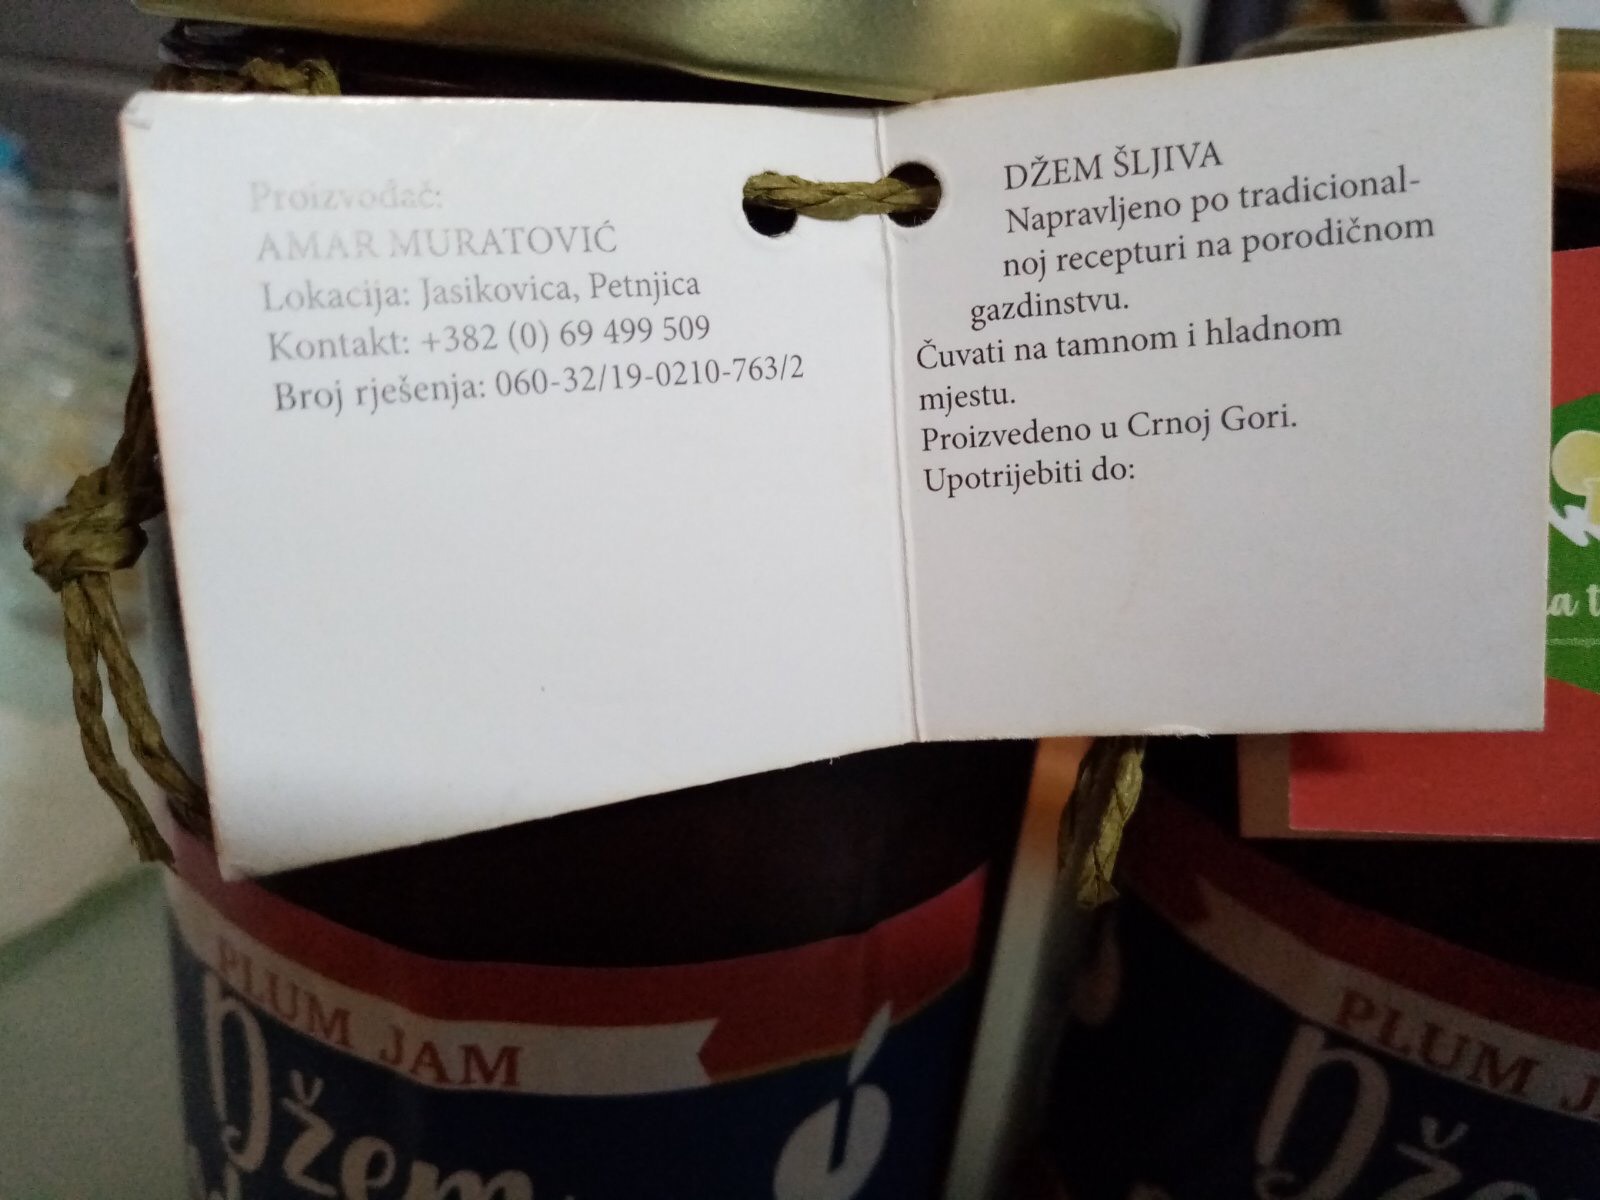 Proizvođač:
AMAR MURATOVIĆ
Lokacija: Jasikovica, Petnjica
Kontakt: +382 (0) 69 499 509
Broj rješenja: 060-32/19-0210-763/2
DŽEM ŠLJIVA
Napravljeno po tradicional-
noj recepturi na porodičnom
gazdinstvu.
Čuvati na tamnom i hladnom
mjestu.
Proizvedeno u Crnoj Gori.
Upotrijebiti do:
PLUM JAM
Džem
PLUM